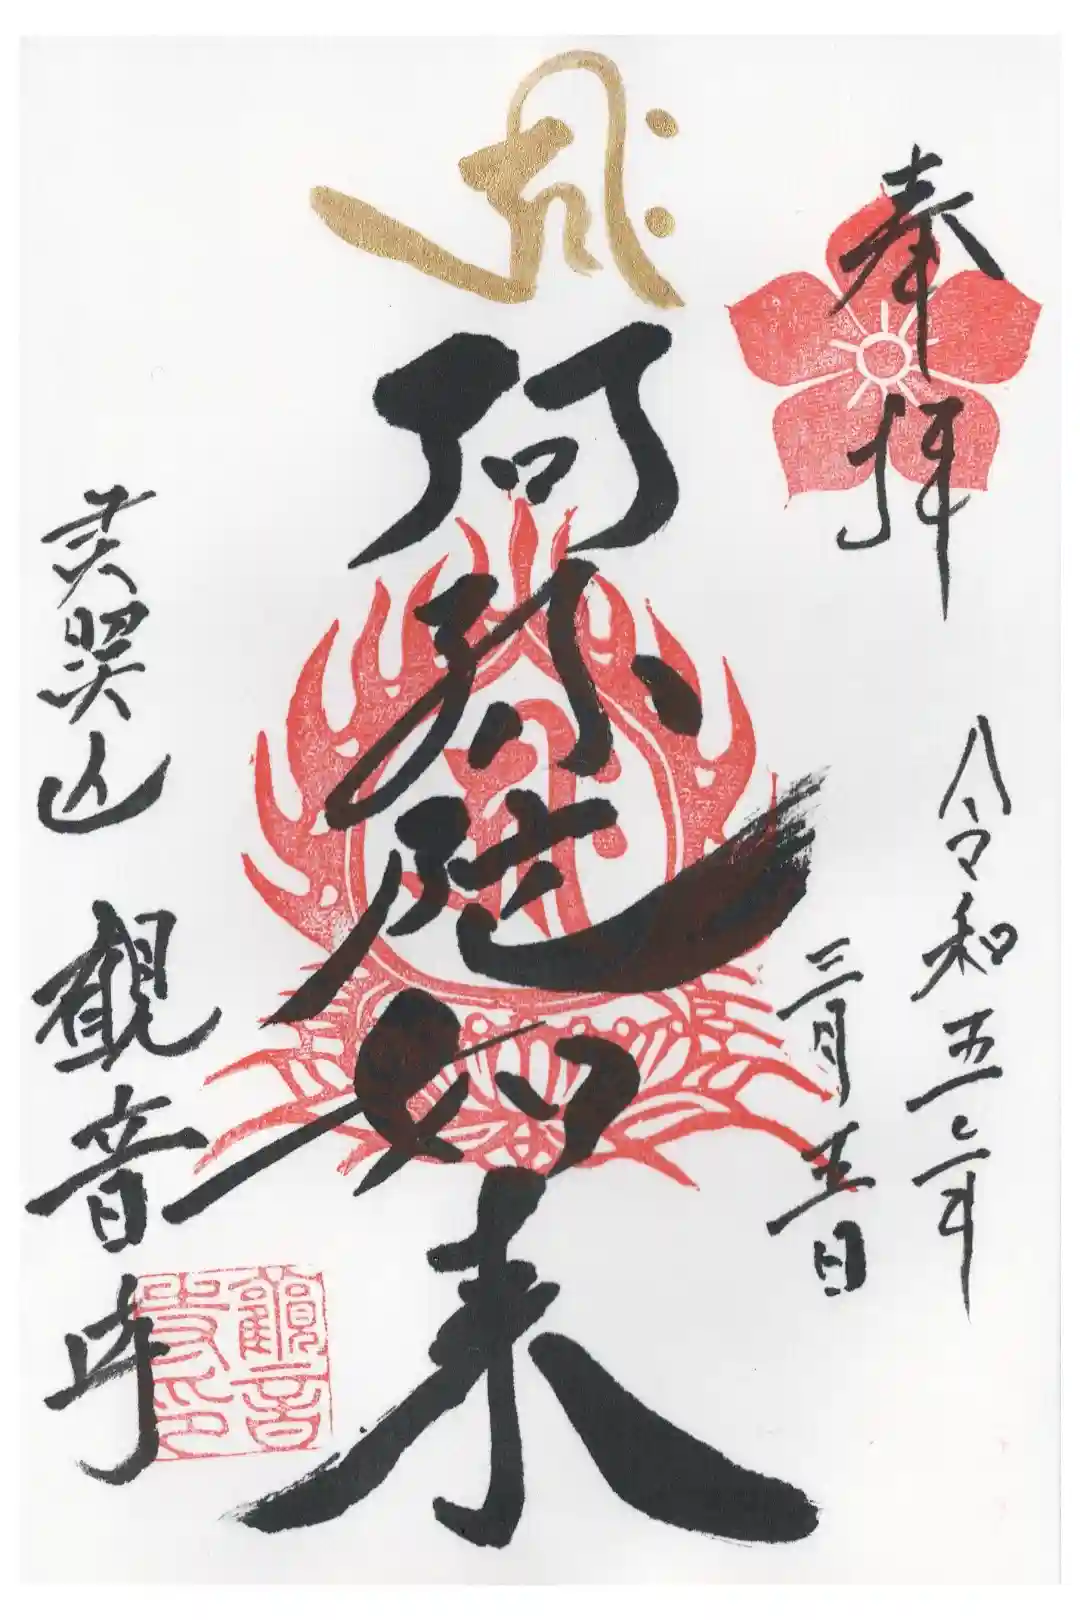 奉拝
令和五年
三月十五日
ह्रीः
阿弥陀如来
山 観音寺
觀音寺印